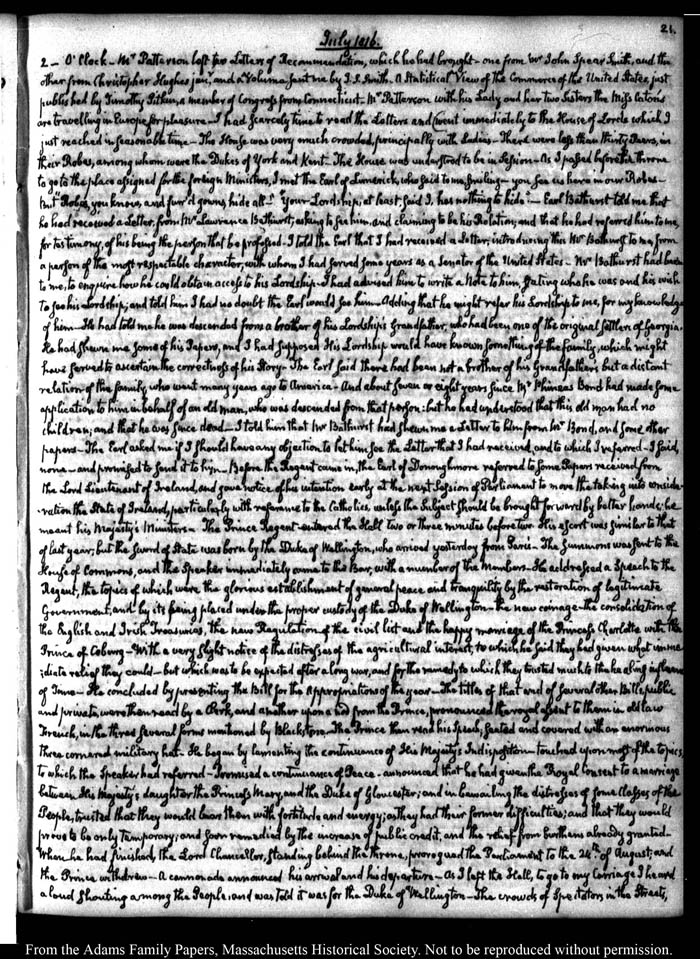 21.
July 1816.
2 – O'Clock – Mr Patterson left two Letters of Recommendation, which he had brought – one from Mr John Spear Smith, and the
other from Christopher Hughes junr. and a Volume sent me by J. S. Smith. A Statistical View of the Commerce of the United States, just
published by Timothy Pitkin, a member of Congress from Connecticut. Mr Patterson with his Lady and her two Sisters the Miss Catons
are travelling in Europe for pleasure – I had scarcely time to read the Letters and went immediately to the House of Lords which I
just reached in seasonable time – The House was very much crowded, principally with Ladies – There were less than thirty Peers, in
their Robes, among whom were the Dukes of York and Kent. The House was understood to be in Session – As I passed before the throne
to go to the place assigned for the foreign Ministers, I met the Earl of Limerick, who said to me, smiling – you see us here in our Robes –
But "Robes, you know, and furr'd gowns, hide all." Your Lordship, at least, said I, has nothing to hide – Earl Bathurst told me that
he had received a Letter, from Mr Lawrence Bathurst, asking to see him, and claiming to be his Relation, and that he had referred him to me,
for testimony, of his being the person that he professed. I told the Earl that I had received a Letter, introducing this Mr Bathurst to me, from
a person of the most respectable character, with whom I had served some years as a Senator of the United States – Mr Bathurst had been
to me, to enquire how he could obtain access to his Lordship. I had advised him to write a Note to him, stating who he was and his wish
to see his Lordship; and told him I had no doubt the Earl would see him – Adding that he might refer his Lordship to me, for my knowledge
of him – He had told me he was descended from a brother of his Lordship's Grandfather, who had been one of the original settlers of Georgia.
He had shewn me some of his Papers, and I had supposed His Lordship would have known something of the family, which might
have served to ascertain the correctness of his Story – The Earl said there had been not a brother of his grandfathers but a distant
relation of the family, who went many years ago to America – And about seven or eight years since Mr Phineas Bond had made some
application to him in behalf of an old man, who was descended from that person: but he had understood that this old man had no
children; and that he was since dead – I told him that Mr Bathurst had shewn me a Letter to him from Mr Bond, and some other
papers – The Earl asked me if I should have any objection to let him see the Letter that I had received, and to which I referred – I said,
none – and promised to send it to him – Before the Regent came in, the Earl of Donoughmore referred to some Papers received from
the Lord Lieutenant of Ireland, and gave notice of his intention early at the next Session of Parliament to move the taking into conside-
-ration the State of Ireland, particularly with reference to the Catholics, unless the Subject should be brought forward by better hands; he
meant his Majesty's Ministers – The Prince Regent entered the Hall two or three minutes before two. His escort was similar to that
of last year; but the Sword of State was born by the Duke of Wellington, who arrived yesterday from Paris – The Summons was sent to the
House of Commons, and the Speaker immediately came to the Bar, with a number of the Members – He addressed a Speech to the
Regent, the topics of which were the glorious establishment of general peace and tranquility by the restoration of legitimate
Government, and by its being placed under the proper custody of the Duke of Wellington – the new coinage – the consolidation of
the English and Irish Treasuries, the new Regulation of the civil list and the happy marriage of the Princess Charlotte with the
Prince of Coburg – With a very slight notice of the distresses of the agricultural interest, to which he said they had given what imme-
diate relief they could – but which was to be expected after a long war, and for the remedy to which they trusted much to the healing influence
of Time – He concluded by presenting the bill for the Appropriations of the year – The titles of that and of several other Bills, public
and private, were then read by a Clerk, and another upon a nod from the Prince, pronounced the royal assent to them in old law
French, in the three several forms mentioned by Blackstone – The Prince then read his Speech, seated and covered with an enormous
three cornered military hat – He began by lamenting the continuance of His Majesty's Indisposition – touched upon most of the topics,
to which the Speaker had referred – Promised a continuance of Peace – announced that he had given the Royal Consent to a marriage
between His Majesty's daughter the Princess Mary, and the Duke of Gloucester; and in bewailing the distresses of some classes of the
People, trusted that they would bear them with fortitude and energy, as they had their former difficulties; and that they would
prove to be only temporary, and soon remedied by the increase of public credit, and the relief from burthens already granted –
When he had finished, the Lord Chancellor, standing behind the throne, prorogued the Parliament to the 24th. of August; and
the Prince withdrew – A cannonade announced his arrival and his departure – As I left the Hall, to go to my Carriage I heard
a loud shouting among the People, and was told it was for the Duke of Wellington – The crowds of Spectators in the Streets,
From the Adams Family Papers, Massachusetts Historical Society. Not to be reproduced without permission.